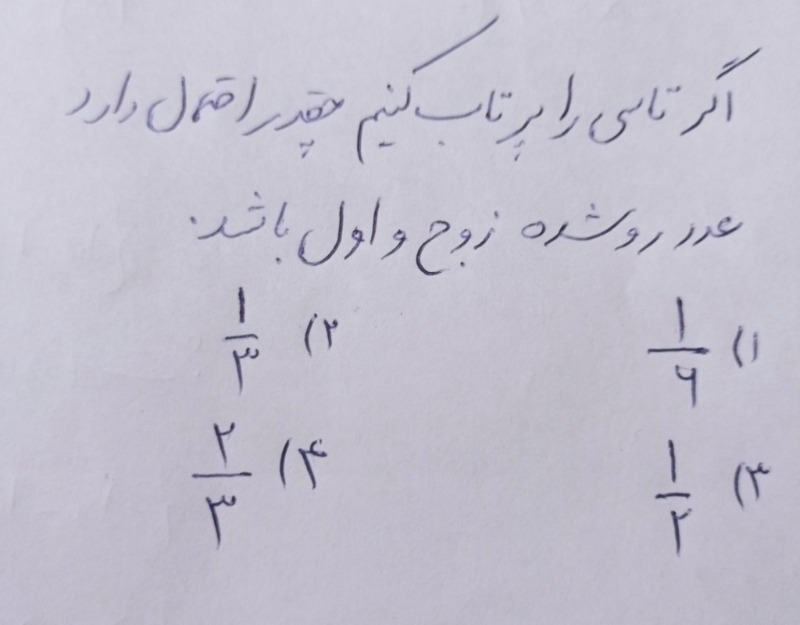 اگر تاسی را پرتاب کنیم چقدر احتمال دارد
عدد رو شده زوج و اول باشد.
۱) ۱/۶ ۲) ۱/۳
۳) ۱/۲ ۴) ۲/۳